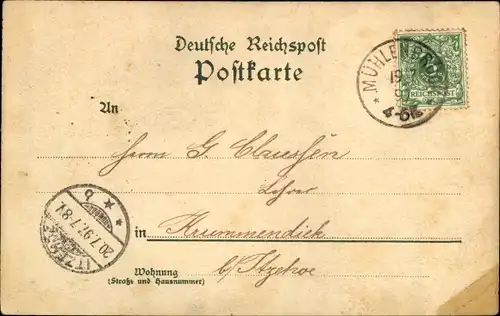 Deutsche Reichspost
Postkarte
MÜHLENB
19 7
97
4-5N.
REICHSPOST
An
Herrn G. Claussen
Lehrer
in Krummendiek
b/ Itzehoe
ITZEHOE
20.7.97.7-8V.
b
Wohnung
(Straße und Hausnummer)